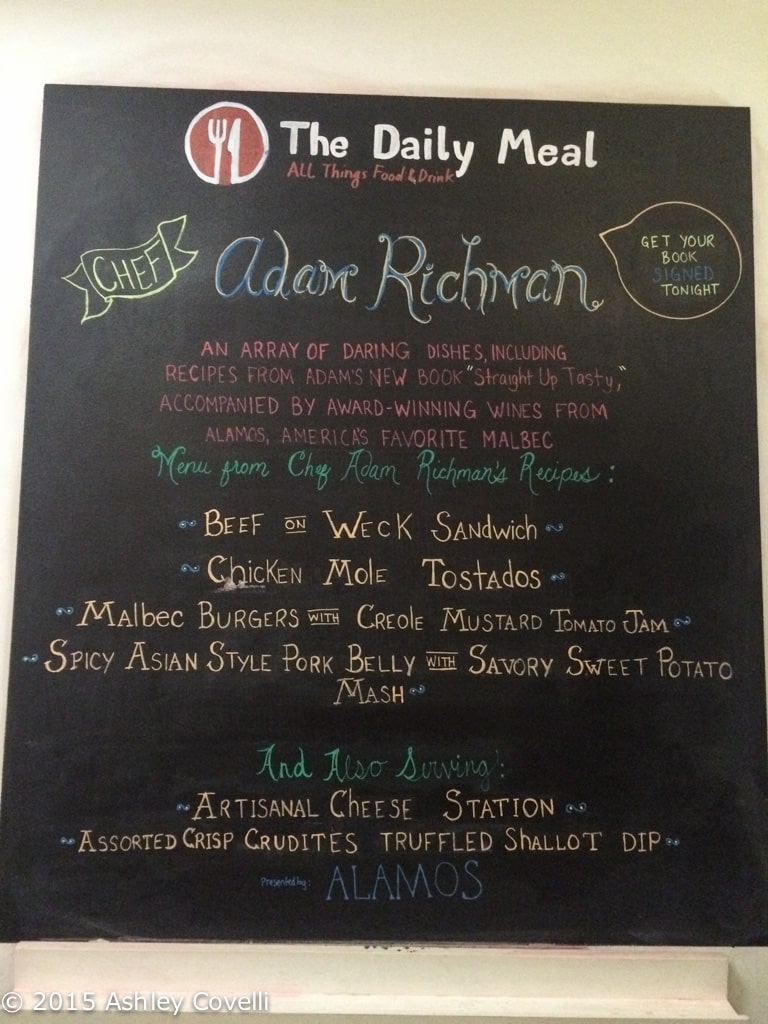 The Daily Meal
ALL Things Food & Drink
CHEF
Adam Richman
GET YOUR
BOOK
SIGNED
TONIGHT
AN ARRAY OF DARING DISHES, INCLUDING
RECIPES FROM ADAM'S NEW BOOK "Straight Up Tasty,"
ACCOMPANIED BY AWARD-WINNING WINES FROM
ALAMOS, AMERICA'S FAVORITE MALBEC
Menu from Chef Adam Richman's Recipes:
BEEF ON WECK SANDWICH
CHICKEN MOLE TOSTADOS
MALBEC BURGERS WITH CREOLE MUSTARD TOMATO JAM
SPICY ASIAN STYLE PORK BELLY WITH SAVORY SWEET POTATO
MASH
And Also Serving:
ARTISANAL CHEESE STATION
ASSORTED CRISP CRUDITES TRUFFLED SHALLOT DIP
Presented by: ALAMOS
© 2015 Ashley Covelli